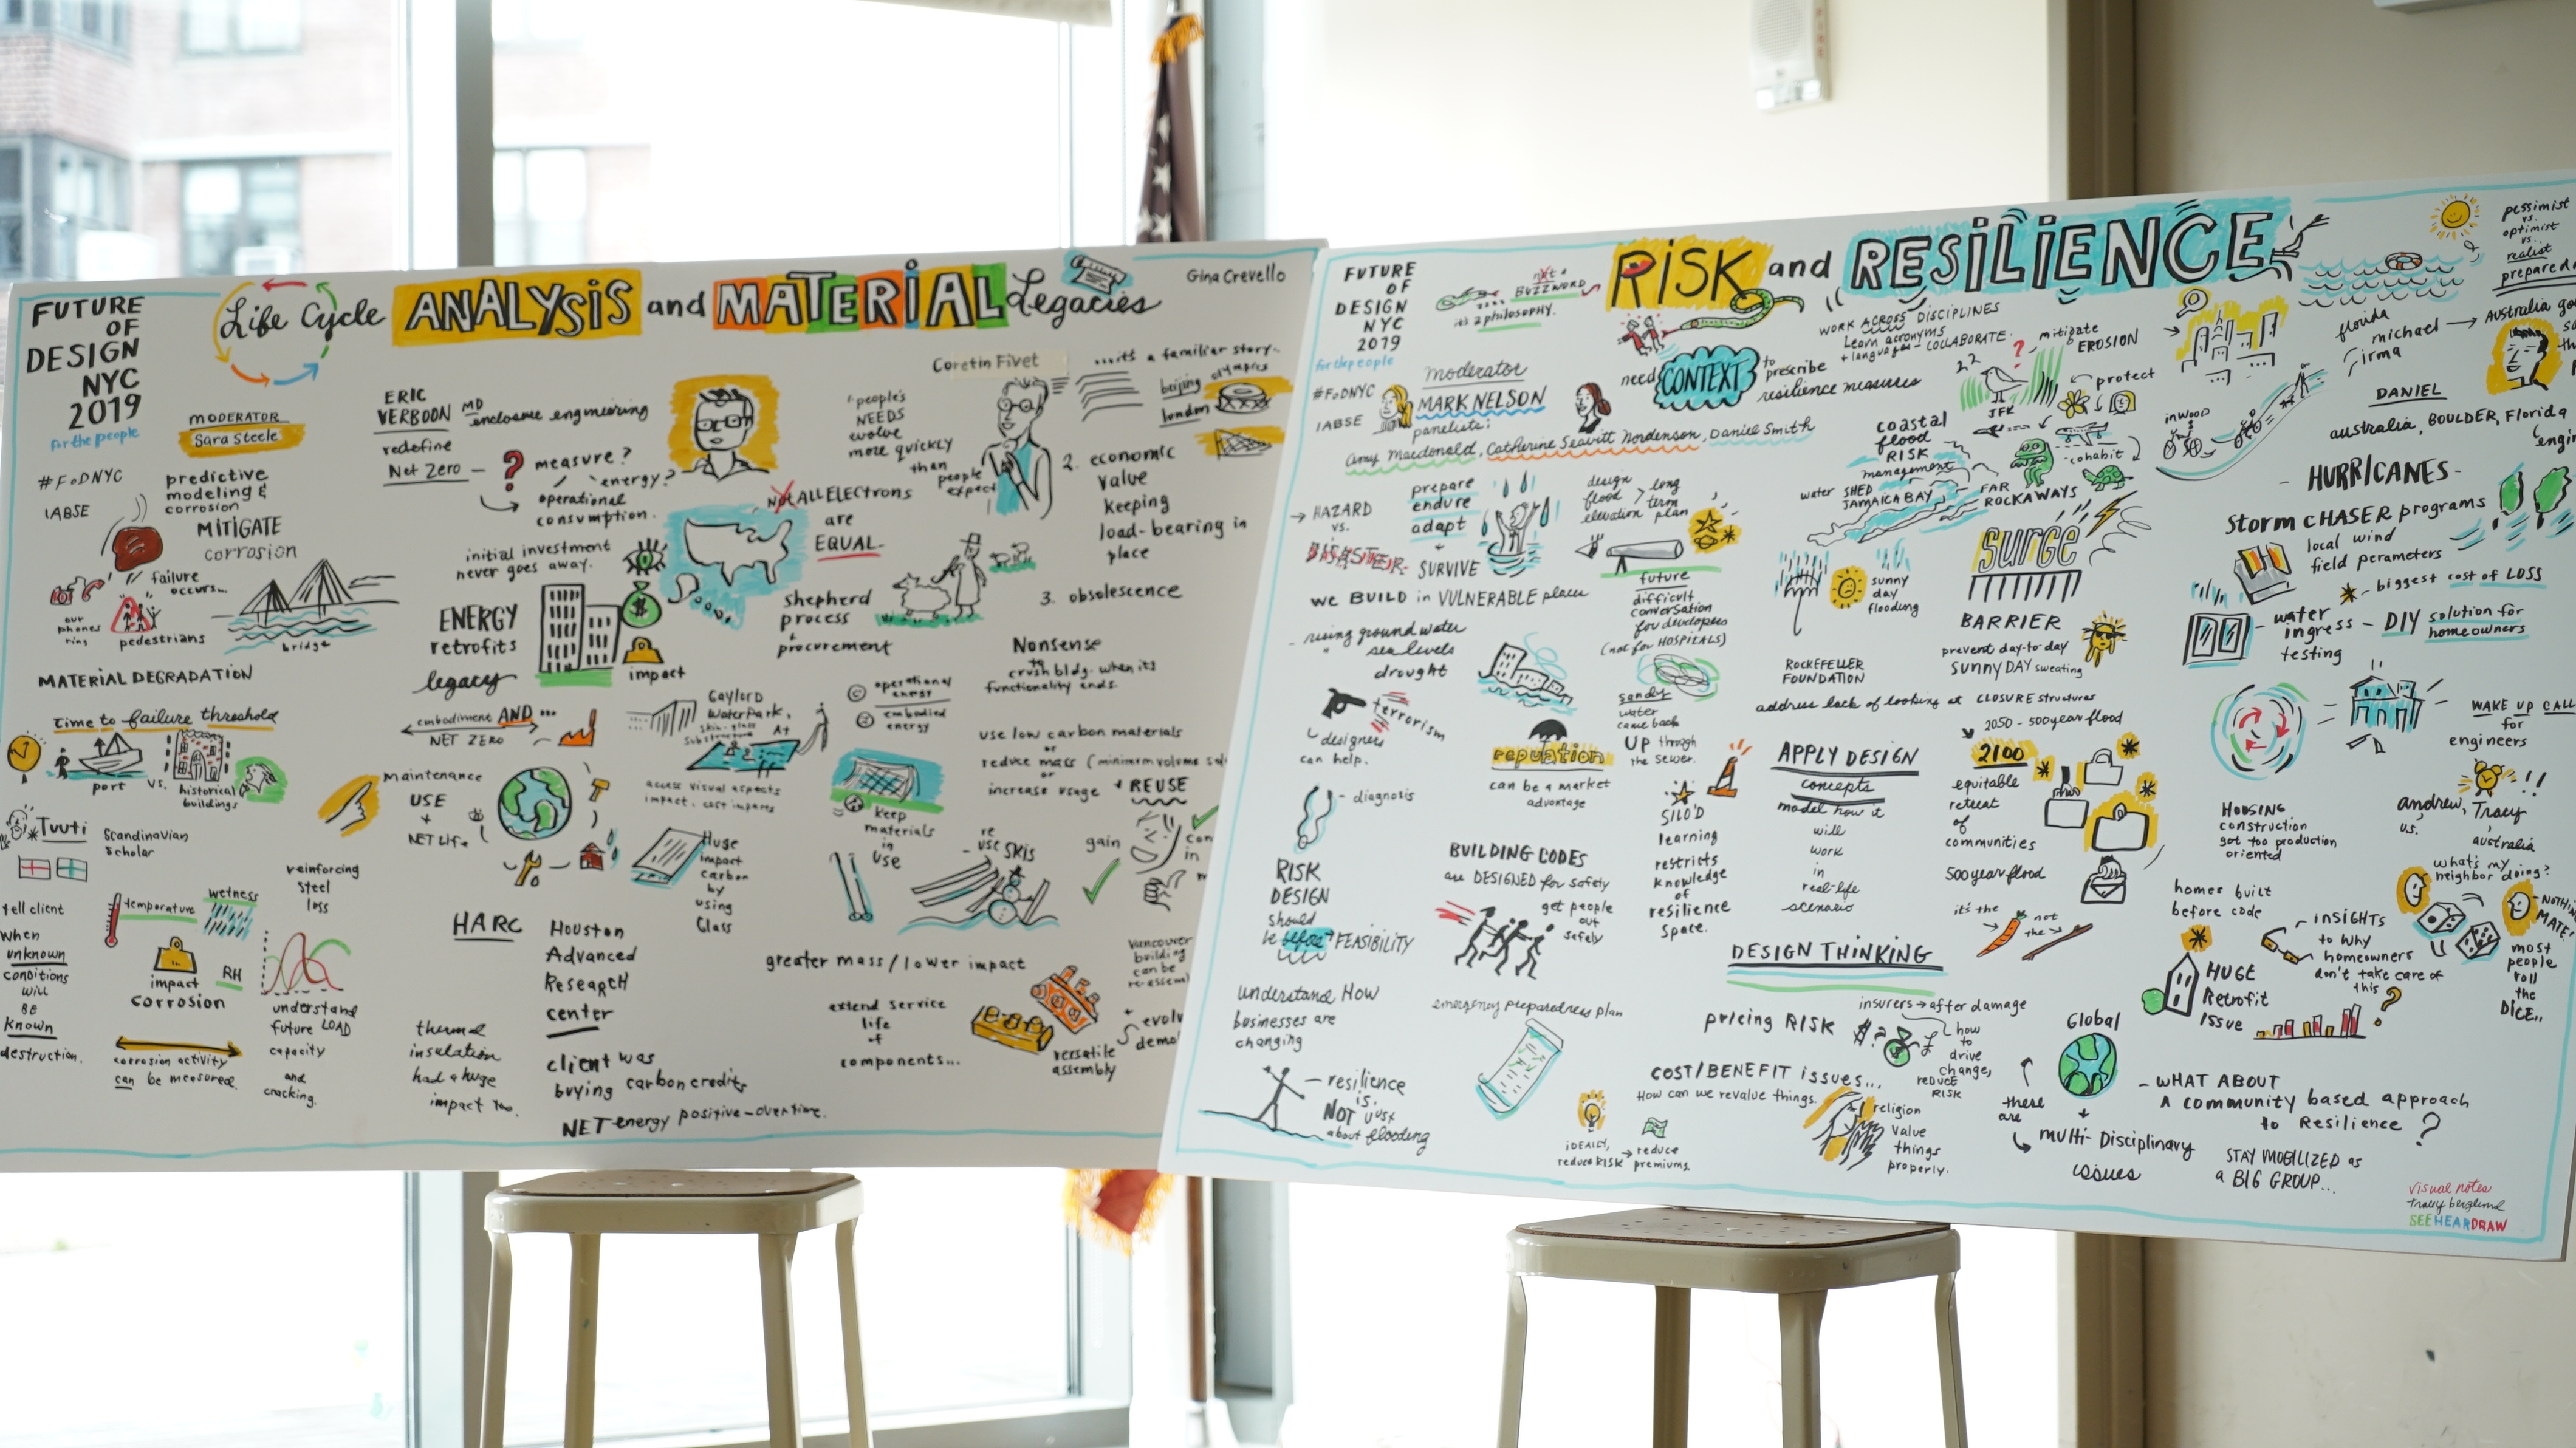 FUTURE
OF
DESIGN
NYC
2019
for the people
#FoDNYC
IABSE
Life Cycle ANALYSIS and MATERIAL Legacies
Gina Crevello
MODERATOR
Sara Steele
predictive
modeling &
corrosion
MITIGATE
corrosion
failure
occurs...
our
phones
ring
pedestrians
bridge
MATERIAL DEGRADATION
time to failure threshold
port
vs.
historical
buildings
Tuuti
Scandinavian
Scholar
tell client
when
unknown
conditions
will
BE
known
destruction.
temperature
wetness
impact
corrosion
RH
corrosion activity
can be measured.
reinforcing
steel
loss
understand
future LOAD
capacity
and
cracking.
ERIC
VERBOON MD
enclosure engineering
redefine
Net Zero
? measure?
energy?
operational
consumption.
initial investment
never goes away.
ENERGY
retrofits
legacy
impact
embodiment AND...
NET ZERO
maintenance
USE
+
NET Life
HARC
Houston
Advanced
Research
center
client was
buying carbon credits
NET energy positive-overtime.
thermal
insulation
had a huge
impact too.
Not ALL ELECTRONS
are
EQUAL
shepherd
process
+
procurement
Gaylord
Waterpark,
access visual aspects
impact, cost impares
Huge
impact
carbon
by
using
Glass
people's
NEEDS
evolve
more quickly
than
people
expect
Coretin Fivet
....it's a familiar story..
beijing olympics
london
2. economic
value
keeping
load-bearing in
place
3. obsolescence
Nonsense
to
crush bldg. when its
functionality ends.
operational
energy
embodied
energy
use low carbon materials
or
reduce mass (minimum volume
or
increase usage + REUSE
keep
materials
in
use
re
use SKIS
gain
greater mass/lower impact
extend service
life
of
components...
versatile
assembly
Vancouver
building
can be
FUTURE
OF
DESIGN
NYC
2019
for the people
#FoDNYC
IABSE
not a
BUZZWORD
it's a philosophy.
RISK and RESILIENCE
moderator
MARK NELSON
panelists:
Amy Macdonald, Catherine Seavitt Nordenson, Daniel Smith
need CONTEXT to
prescribe
resilience measures
WORK ACROSS DISCIPLINES
Learn acronyms
+ languages - COLLABORATE.
→ HAZARD
vs.
DISASTER
prepare
endure
adapt
+
SURVIVE
design
flood > long
elevation term plan
we BUILD in VULNERABLE places
- rising ground water
" sea levels
drought
terrorism
designers
can help.
diagnosis
RISK
DESIGN
should
be before FEASIBILITY
understand How
businesses are
changing
resilience
is
NOT just
about flooding
future
difficult
conversation
for developers
(not for HOSPITALS)
sandy
water
came back
UP through
the sewer.
reputation
can be a market
advantage
BUILDING CODES
are DESIGNED for safety
get people
out
safely
emergency preparedness plan
IDEALLY,
reduce RISK → reduce
premiums.
SILO'D
learning
restricts
knowledge
of
resilience
space.
coastal
flood
RISK
management
water SHED
JAMAICA BAY
FAR
ROCKAWAYS
JFK
mitigate
EROSION
protect
cohabit
inwood
sunny
day
flooding
surge
BARRIER
prevent day-to-day
SUNNY DAY sweating
ROCKEFELLER
FOUNDATION
address lack of looking at CLOSURE structures
2050 - 500 year flood
2100
equitable
retreat
of
communities
500 year flood
it's the
not
the
APPLY DESIGN
concepts
model how it
will
work
in
real-life
scenario
DESIGN THINKING
pricing RISK
insurers → after damage
how
to
drive
change,
REDUCE
RISK
COST/BENEFIT issues...
How can we revalue things.
religion
value
things
properly.
Global
these
are
multi-Disciplinary
issues
florida
michael
irma
pessimist
vs.
optimist
vs.
realist
DANIEL
australia, BOULDER, Florida
- HURRICANES -
Storm CHASER programs
local wind
field perameters
biggest cost of LOSS
water
ingress
testing
- DIY solution for
homeowners
WAKE UP CALL
for
engineers
andrew, Tracy
us.
australia
HOUSING
construction
got too production
oriented
homes built
before code
HUGE
Retrofit
Issue
INSIGHTS
to why
homeowners
don't take care of
this
?
what's my
neighbor doing?
most
people
roll
the
DICE..
- WHAT ABOUT
A community based approach
to Resilience ?
STAY MOBILIZED as
a BIG GROUP...
visual notes
tracy berglund
SEEHEARDRAW